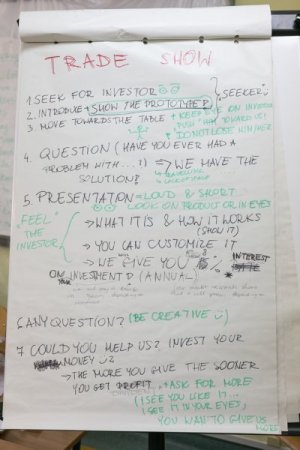 TRADE SHOW
1. SEEK FOR INVESTOR
} SEEKER
2. INTRODUCE + SHOW THE PROTOTYPE
3. MOVE TOWARDS THE TABLE
+ KEEP EYE ON INVESTOR
PUSH HIM TOWARD US!
DO NOT LOSE HIM/HER
4. QUESTION (HAVE YOU EVER HAD A
PROBLEM WITH ...!) => WE HAVE THE
SOLUTION!
5. PRESENTATION → LOUD & SHORT
LOOK ON PRODUCT OR IN EYES
FEEL
THE
INVESTOR
→ WHAT IT IS & HOW IT WORKS
(SHOW IT)
→ YOU CAN CUSTOMIZE IT
→ WE GIVE YOU 8% INTEREST
ON INVESTMENT (ANNUAL)
6. ANY QUESTION? (BE CREATIVE :))
7. COULD YOU HELP US? INVEST YOUR
MONEY
→ THE MORE YOU GIVE THE SOONER
YOU GET PROFIT. + ASK FOR MORE
(I SEE YOU LIKE IT...
I SEE IT IN YOUR EYES,
YOU WANT TO GIVE US
MORE